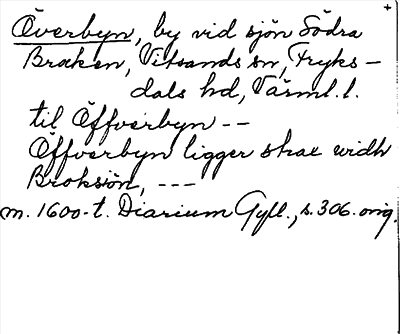 Överbyn, by vid sjön Södra
Braken, Vitsands sn, Fryks-
dals hd, Värml. l.
til Öffverbyn --
Öffverbyn ligger strax widh
Broksiön, ---
m. 1600-t. Diarium Gyll., s. 306. orig.